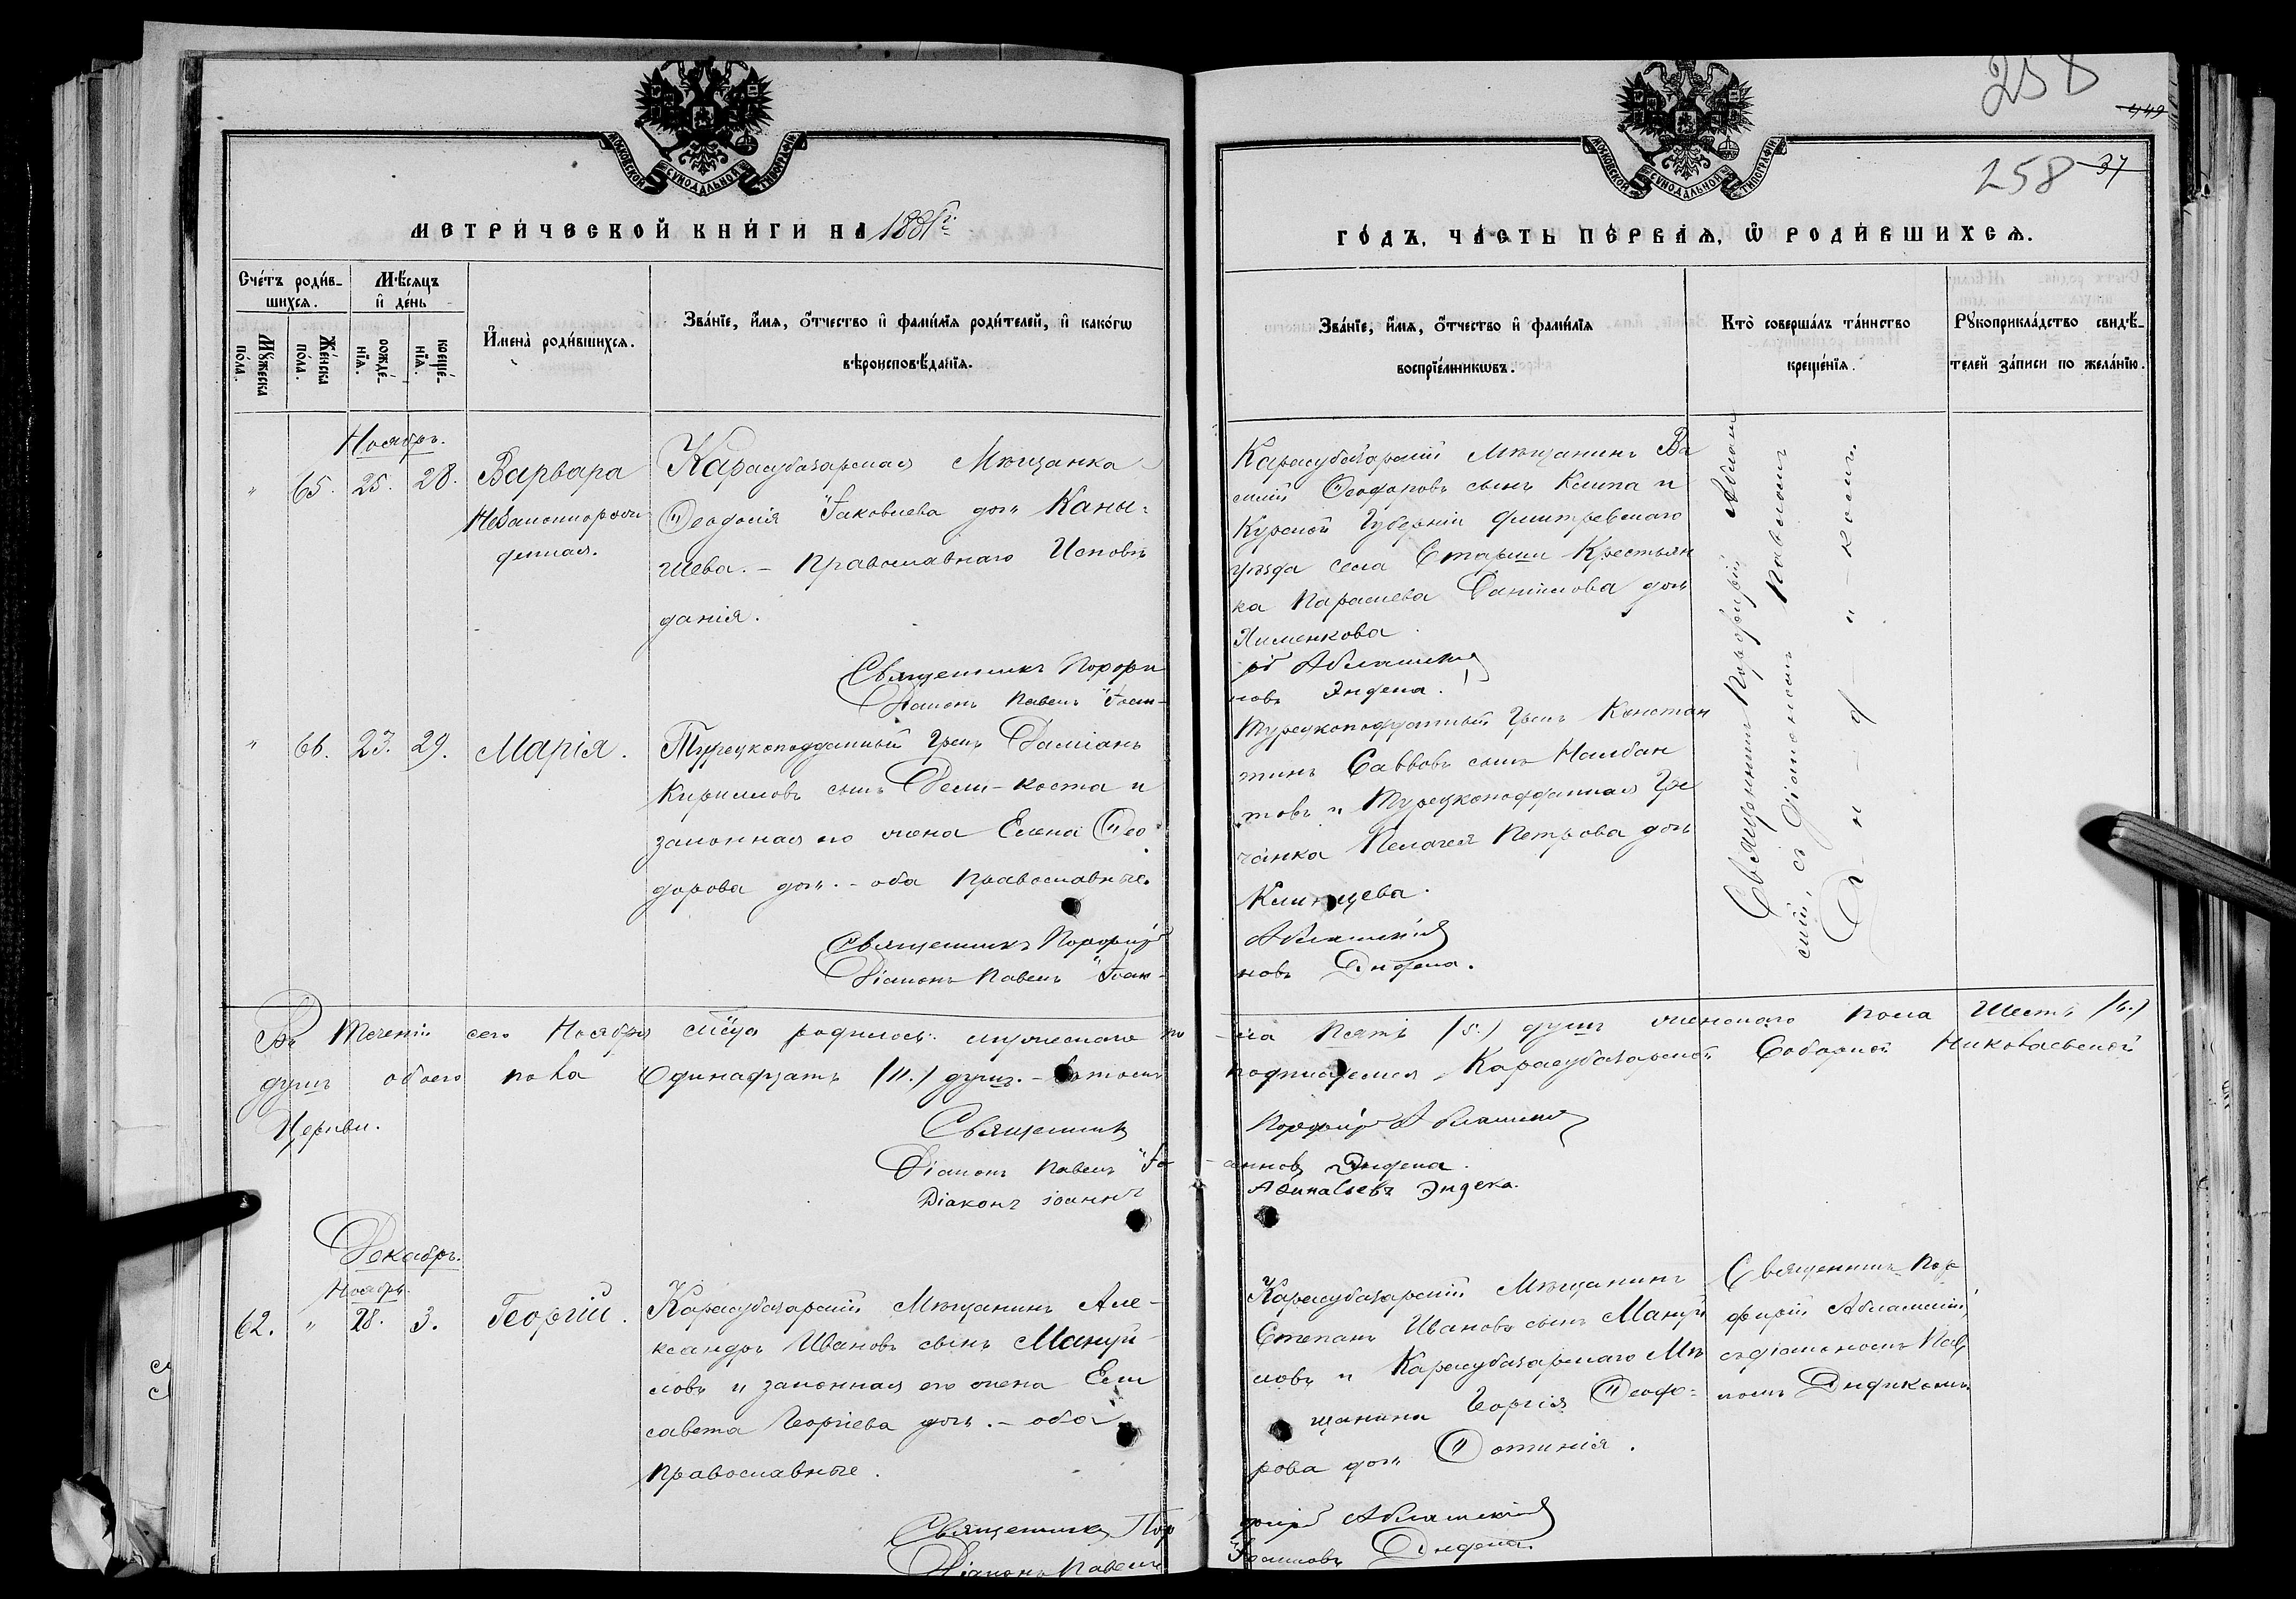 258
449
МОСКОВСКОЙ СУНОДАЛЬНОЙ ТИПОГРАФІИ
МОСКОВСКОЙ СУНОДАЛЬНОЙ ТИПОГРАФІИ
258 37
МЕТРИ́ЧЕСКОЙ КНИ́ГИ НА 1881 г.
ГО́ДЪ, ЧА́СТЬ ПЕ́РВАѦ, Ѡ҆ РОДИ́ВШИХСѦ.
Сче́тъ роди́в-
шихсѧ.
Мꙋ́жеска по́ла.
Же́нска по́ла.
Мѣ́сѧцъ
и҆ де́нь
рожде́-
нїѧ.
креще́-
нїѧ.
И҆мена̀ роди́вшихсѧ.
Зва́нїе, и҆́мѧ, ѻ҆́тчество и҆ фами́лїѧ роди́телей, и҆ како́гѡ
вѣроисповѣ́данїѧ.
Зва́нїе, и҆́мѧ, ѻ҆́тчество и҆ фами́лїѧ
воспрїе́мникѡвъ.
Кто̀ соверша́лъ та́инство
креще́нїѧ.
Рꙋкоприкла́дство свидѣ́-
телей за́писи по жела́нїю.
Ноябрь.
" 65. 25. 28.
Варвара
Незаконнорож
денная.
Карасубазарская Мѣщанка
Ѳеодосія Іаковлева дочь Каны-
шева. – Православнаго Исповѣ
данія.
Священникъ Порфи
Діаконъ Павелъ Іоан-
Карасубазарскій Мѣщанинъ Ва
силій Ѳеофановъ сынъ и
Курской Губерніи Дмитревскаго
уѣзда села Крестьян
ка Параскева Даніилова дочь
Хименкова.
рій Аблашкій
новъ Эндека.
Священникъ Порфирій Аблаш
кій, съ Діакономъ Павломъ
Э – н – д – и – комъ.
" 66. 23. 29. Марія.
Турецкоподданный Грекъ Даміанъ
Кирилловъ сынъ Дели-Коста и
законная его жена Елена Ѳео
дорова дочь. – оба Православные.
Священникъ Порфирій
Діаконъ Павелъ Іоан-
Турецкоподданный Грекъ Констан
тинъ Саввовъ сынъ Налбан
товъ и Турецкоподданная Гре
чанка Пелагея Петрова дочь
Аблашкій
новъ Эндека.
Въ Теченіи сего Ноября мѣсяца родилось: мужескаго по-ла Пять (5.) душъ женскаго пола Шесть (6.)
душъ обоего пола Одинадцать (11.) душъ. – въ томъ подписуемся, Карасубазарской Соборной Николаевской
Церкви.
Священникъ Порфирій Аблашкій
Діаконъ Павелъ Іо-анновъ Эндека.
Діаконъ Іоаннъ Эндека.
Декабрь.
Ноябрь.
62. " 28. 3. Георгій.
Карасубазарскій Мѣщанинъ Але-
ксандръ Ивановъ сынъ Мануй
ловъ и законная его жена Ели
савета Георгіева дочь. – оба
православные.
Священникъ Пор
Діаконъ Павелъ
Карасубазарскій Мѣщанинъ
Степанъ Ивановъ сынъ Мануй
ловъ и Карасубазарскаго Мѣ
щанина Георгія Ѳеодо-
рова дочь Фотинія.
фирій Аблашкій
Іоанновъ Эндека.
Священникъ Пор
фирій Аблашкій,
съ діакономъ Пав
ломъ Эндикомъ.